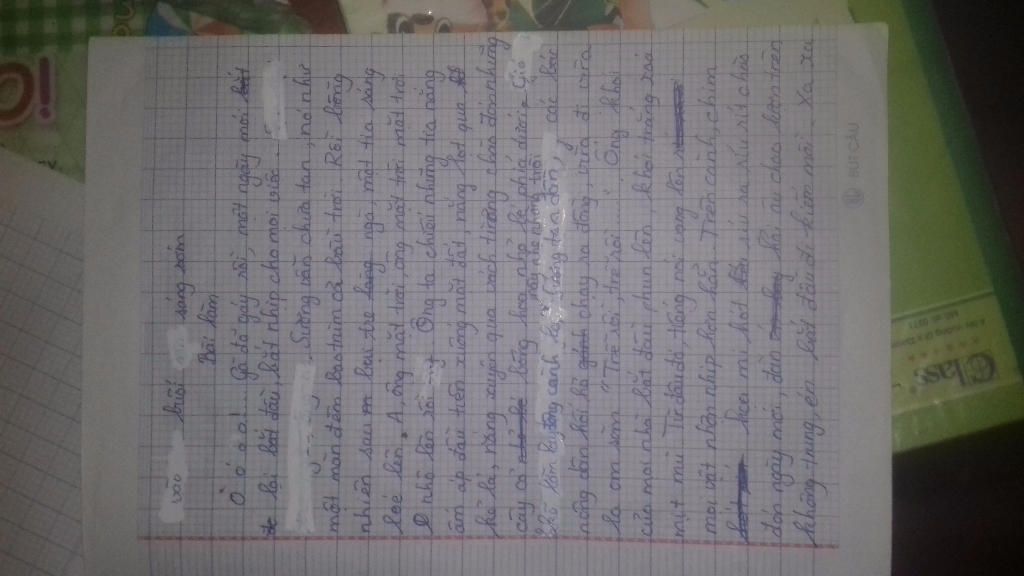 buổi sáng sớm
Bài làm
Ò ó o o!... gà đã gáy rồi, một ngày mới
lại bắt đầu, bắt nhịp cho mọi
Sương vẫn chưa tan, nó như
một màn đêm bao trùm cả bầu trời. Rồi bỗng
nhiên sau lũy tre làng ngà, một tia sáng
loé lên. A ông mặt trời, ông mặt trời mặt trời
nhô lên rồi. Ông ta chiếu những tia nắng
ấm áp đầu tiên xuống mặt đất, nắng lọt qua
kẽ lá, nắng xuyên qua vách tường chào đón những
cây cỏ bông hoa nhỏ bé phía dưới. Gió
tan dần, các bác
nông dân hối hả chạy ra đồng, vừa đi vừa
la om sòm "Trễ rồi, trễ rồi..... Ống khói
của mọi nhà bắt đầu phun lên, khói trắng xoá
mịt mù. Từ đâu đó, tiếng nói vang lên
mọi vật nhộn nhịp hơn hẳn. Trên cành, chim
hoạ mi hót líu ra ríu rít chào
đón ngày mới, đàn hải âu chao lượn trên
không trung, én bắt đầu đi kiếm mồi. Xa xa
BÚT CẦU
Class